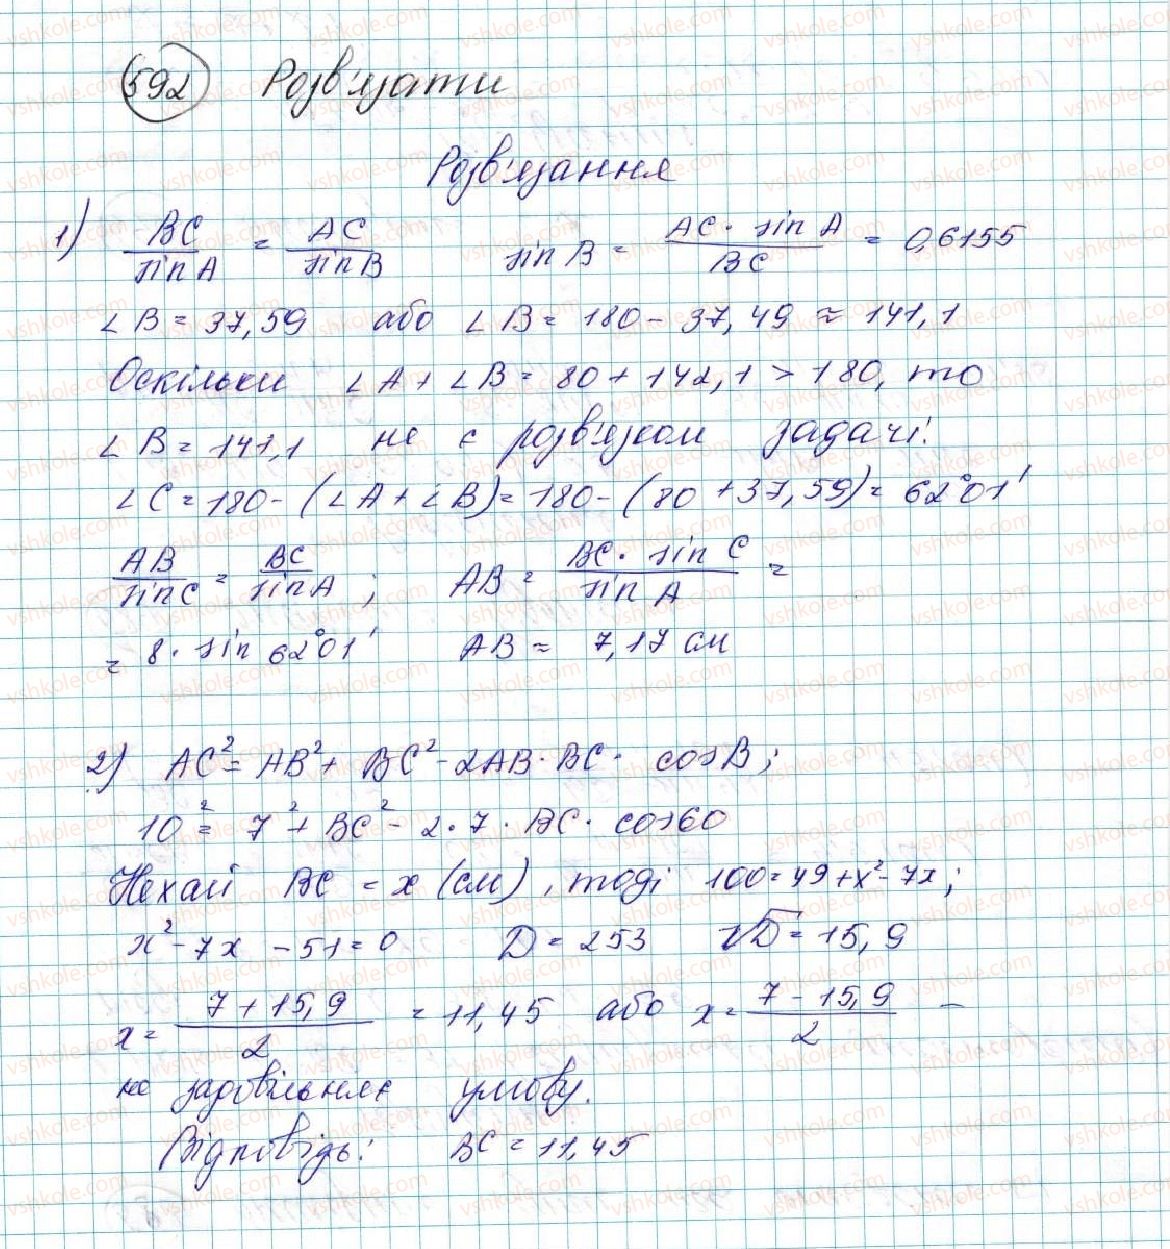 592 Розв'язати
Розв'язання
1) BC/sin A = AC/sin B sin B = AC · sin A/BC = 0,6155
∠B = 37,59 або ∠B = 180 - 37,49 ≈ 141,1
Оскільки ∠A + ∠B = 80 + 142,1 > 180, то
∠B = 141,1 не є розв'язком задачі.
∠C = 180 - (∠A + ∠B) = 180 - (80 + 37,59) = 62°01'
AB/sin C = BC/sin A ; AB = BC · sin C/sin A =
= 8 · sin 62°01' AB ≈ 7,17 см
2) AC² = AB² + BC² - 2AB · BC · cos B;
10² = 7² + BC² - 2 · 7 · BC · cos 60
Нехай BC = x (см), тоді 100 = 49 + x² - 7x;
x² - 7x - 51 = 0 D = 253 √D = 15,9
x = 7 + 15,9/2 = 11,45 або x = 7 - 15,9/2 -
не задовільняє умову.
Відповідь: BC = 11,45